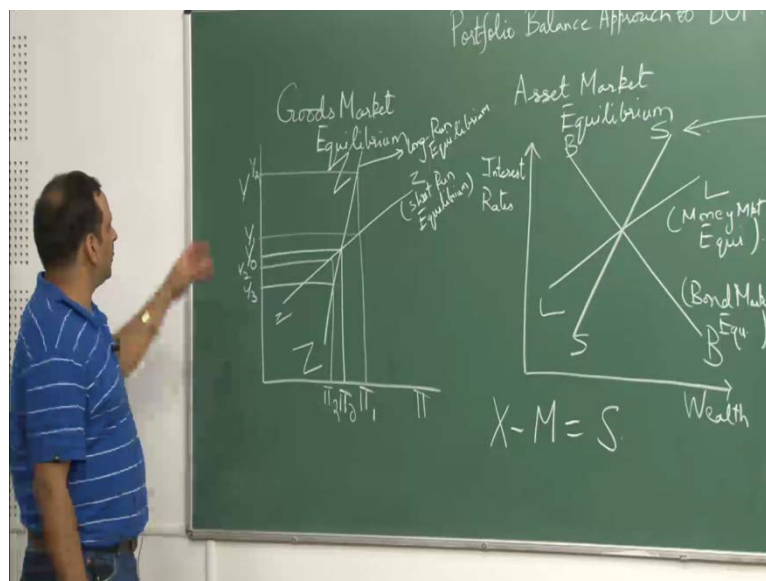 Portfolio Balance Approach to BOP
Goods Market
Equilibrium
Long-Run
Equilibrium
Z
(Short Run
Equilibrium)
Y
Z
Z
π
Asset Market
Equilibrium
B
S
Interest
Rates
L
(Money Mkt
Equi)
L
(Bond Mark
Equ.)
S
B
Wealth
X-M=S